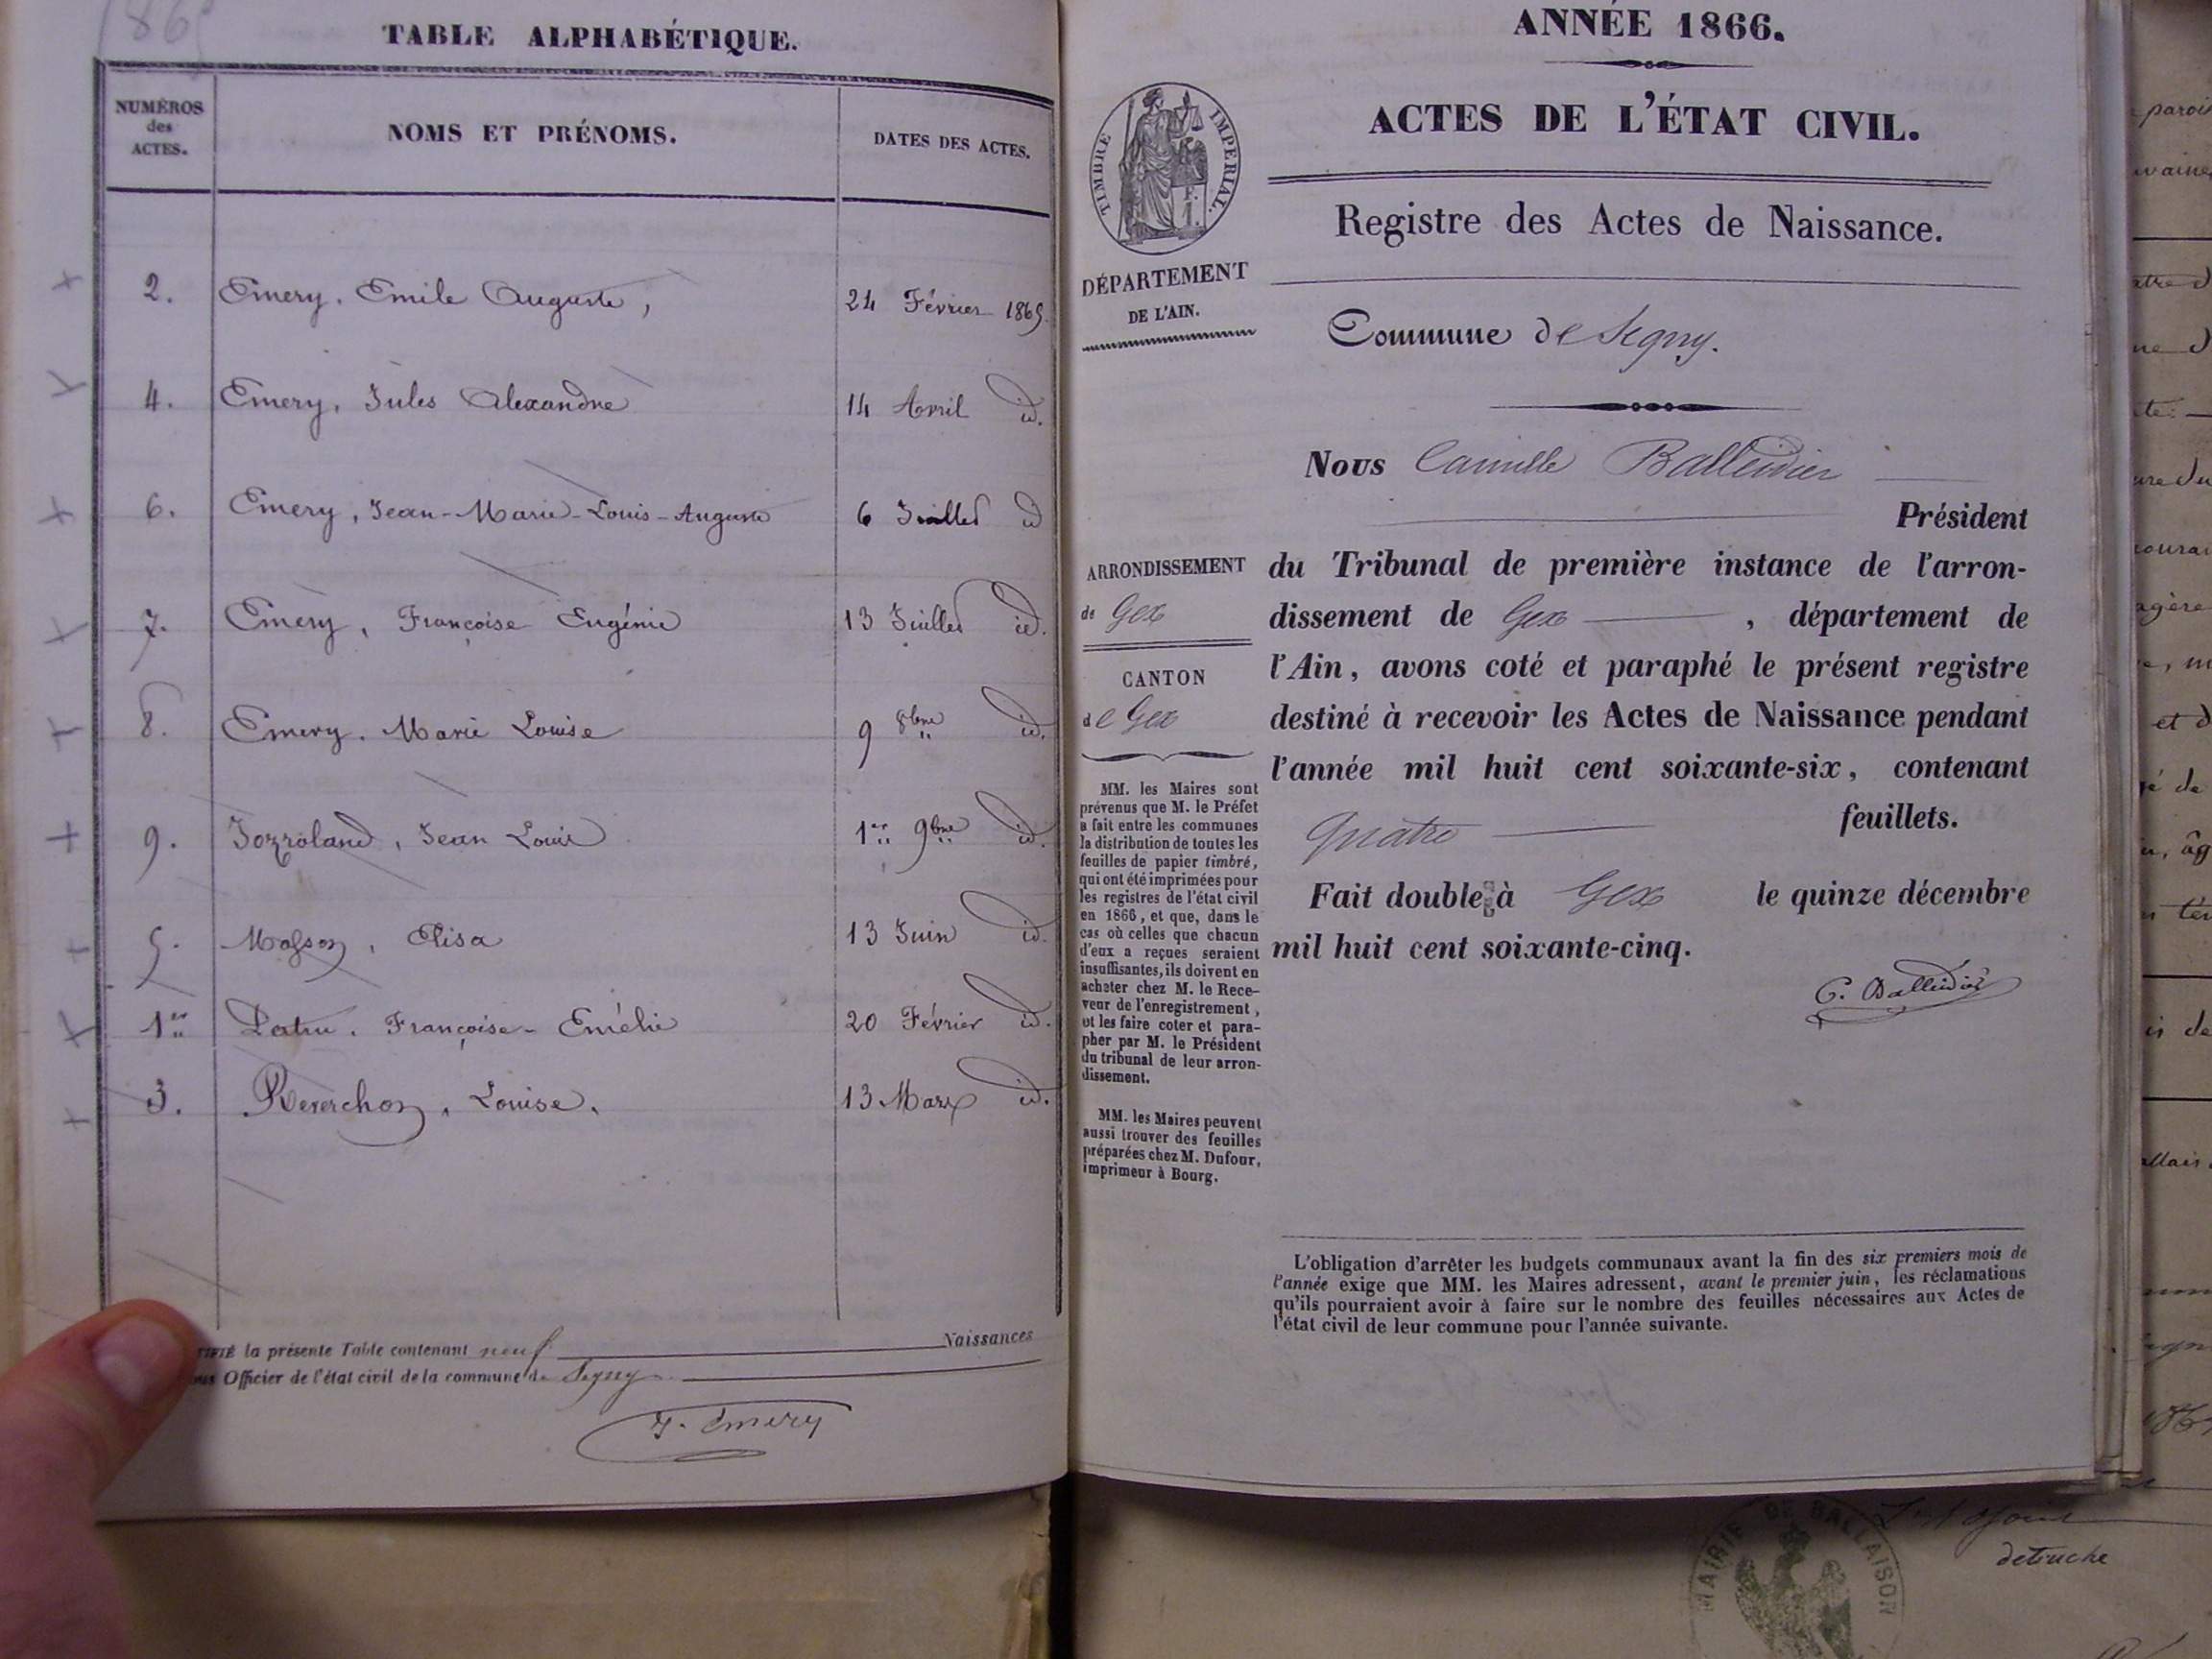 1865
TABLE ALPHABÉTIQUE.
NUMÉROS
des
ACTES.
NOMS ET PRÉNOMS.
DATES DES ACTES.
2. Emery, Emile Auguste, 24 Février 1865
4. Emery, Jules Alexandre 14 Avril id.
6. Emery, Jean-Marie-Louis-Auguste 6 Juillet id
7. Emery, Françoise Eugénie 13 Juillet id.
8. Emery. Marie Louise 9 8bre id.
9. Jozroland, Jean Louis 1er 9bre id.
5. Masson, Elisa 13 Juin id.
1er Patru. Françoise-Emélie 20 Février id.
3. Reverchon, Louise. 13 Mars id.
TIFIÉ la présente Table contenant neuf Naissances
ous Officier de l'état civil de la commune de Segny
J. Emery
ANNÉE 1866.
ACTES DE L'ÉTAT CIVIL.
TIMBRE IMPERIAL.
Registre des Actes de Naissance.
DÉPARTEMENT
DE L'AIN.
Commune de Segny.
Nous Camille Balleidier
Président
ARRONDISSEMENT
de Gex
CANTON
de Gex
du Tribunal de première instance de l'arron-
dissement de Gex , département de
l'Ain, avons coté et paraphé le présent registre
destiné à recevoir les Actes de Naissance pendant
l'année mil huit cent soixante-six, contenant
Quatre feuillets.
Fait double à Gex le quinze décembre
mil huit cent soixante-cinq.
C. Balleidier
MM. les Maires sont
prévenus que M. le Préfet
a fait entre les communes
la distribution de toutes les
feuilles de papier timbré,
qui ont été imprimées pour
les registres de l'état civil
en 1866, et que, dans le
cas où celles que chacun
d'eux a reçues seraient
insuffisantes, ils doivent en
acheter chez M. le Rece-
veur de l'enregistrement,
et les faire coter et para-
pher par M. le Président
du tribunal de leur arron-
dissement.
MM. les Maires peuvent
aussi trouver des feuilles
préparées chez M. Dufour,
imprimeur à Bourg.
L'obligation d'arrêter les budgets communaux avant la fin des six premiers mois de
l'année exige que MM. les Maires adressent, avant le premier juin, les réclamations
qu'ils pourraient avoir à faire sur le nombre des feuilles nécessaires aux Actes de
l'état civil de leur commune pour l'année suivante.
MAIRIE DE BALLAISON
detruche